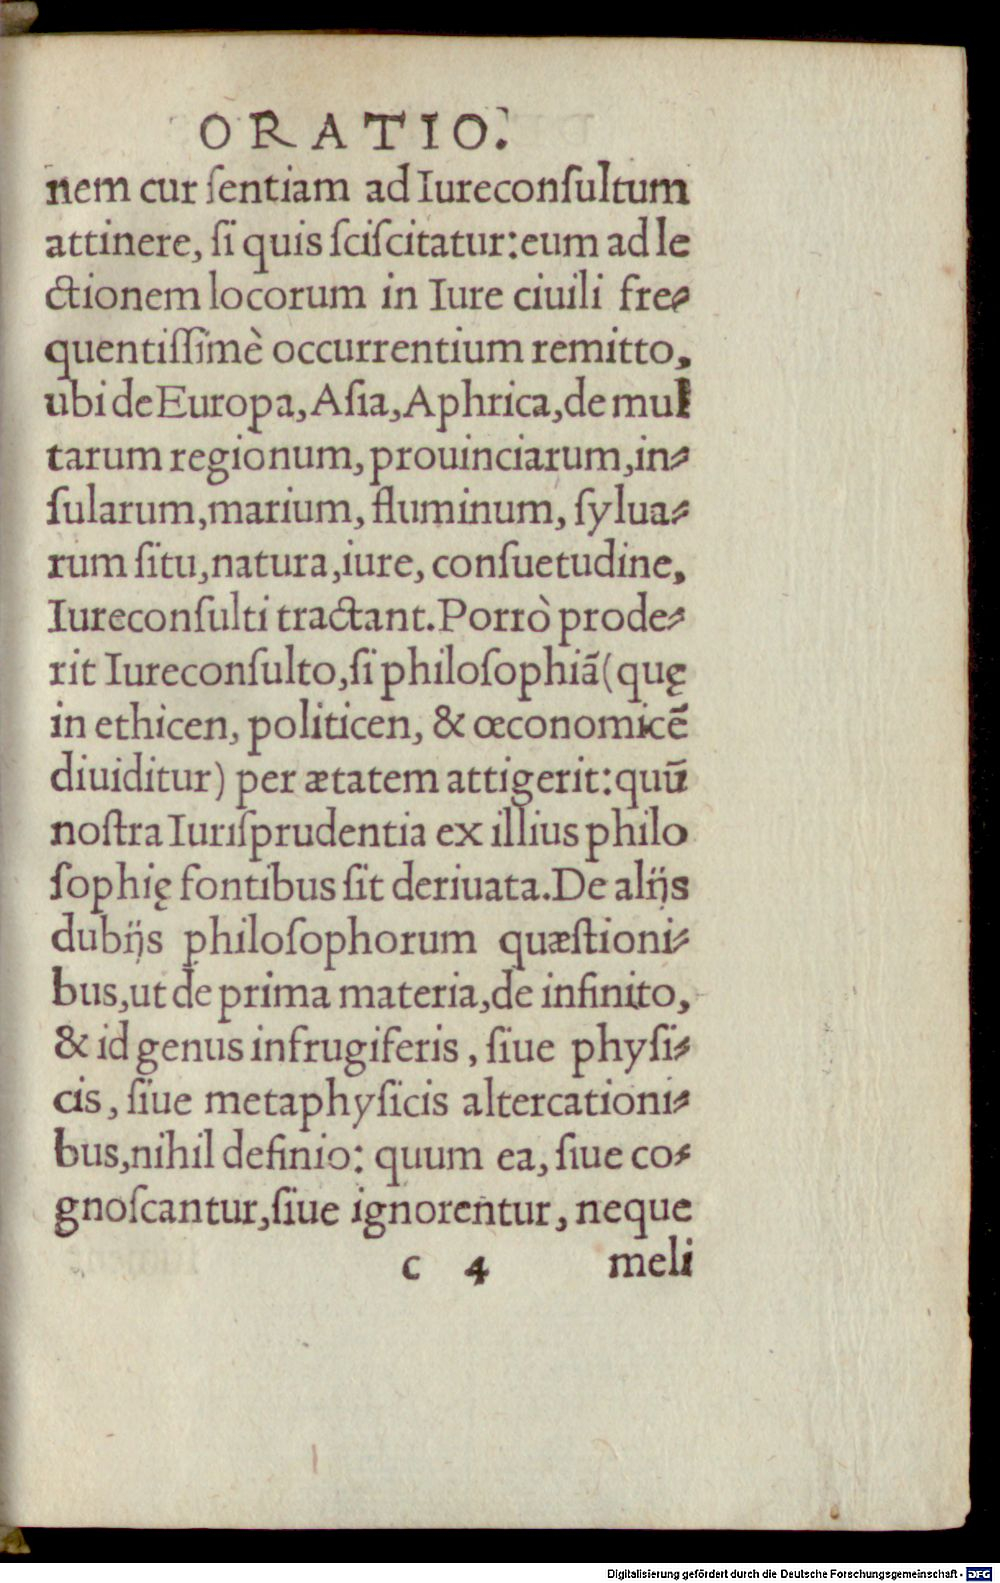 ORATIO.
nem cur ſentiam ad Iureconſultum
attinere, ſi quis ſciſcitatur: eum ad le
ctionem locorum in Iure ciuili fre⸗
quentiſſimè occurrentium remitto,
ubi de Europa, Aſia, Aphrica, de mul
tarum regionum, prouinciarum, in⸗
ſularum, marium, fluminum, ſylua⸗
rum ſitu, natura, iure, conſuetudine,
Iureconſulti tractant. Porrò prode⸗
rit Iureconſulto, ſi philoſophiã (quę
in ethicen, politicen, & œconomicẽ
diuiditur) per ætatem attigerit: quũ
noſtra Iuriſprudentia ex illius philo
ſophię fontibus ſit deriuata. De alijs
dubijs philoſophorum quæſtioni⸗
bus, ut de prima materia, de infinito,
& id genus infrugiferis, ſiue phyſi⸗
cis, ſiue metaphyſicis altercationi⸗
bus, nihil definio: quum ea, ſiue co⸗
gnoſcantur, ſiue ignorentur, neque
c 4 meli
Digitalisierung gefördert durch die Deutsche Forschungsgemeinschaft - DFG